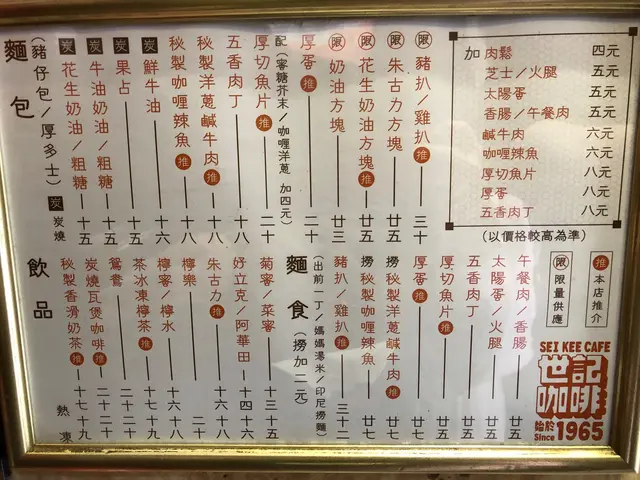 麵包
(豬仔包/厚多士)
炭 炭燒
炭 花生奶油/粗糖 十五
炭 牛油奶油/粗糖 十五
炭 果占 十五
炭 鮮牛油 十六
秘製咖喱辣魚 推 十八
秘製洋蔥鹹牛肉 推 十八
五香肉丁 十八
厚切魚片 推 二十
記(蜜糖芥末/咖喱洋蔥 加四元)
厚蛋 推 二十
限 奶油方塊 廿三
限 花生奶油方塊 推 廿五
限 朱古力方塊 廿五
限 豬扒/雞扒 推 三十
加 肉鬆 四元
芝士/火腿 五元
太陽蛋 五元
香腸/午餐肉 五元
鹹牛肉 六元
咖喱辣魚 六元
厚切魚片 八元
厚蛋 八元
五香肉丁 八元
(以價格較高為準)
飲品
熱 凍
秘製香滑奶茶 推 十七 十九
炭燒瓦煲咖啡 推 二十 二十
鴛鴦 二十 二十
茶冰凍檸茶 推 十七 十九
檸蜜/檸水 十六 十八
檸樂 二十
朱古力 推 十六 十八
好立克/阿華田 十四 十六
菊蜜/菜蜜 十三 十五
麵食
(撈加二元)
(出前一丁/媽媽湯米/印尼撈麵)
豬扒/雞扒 推 三十二
撈 秘製咖喱辣魚 廿七
撈 秘製洋蔥鹹牛肉 推 廿七
厚蛋 推 廿七
厚切魚片 推 廿七
五香肉丁 廿五
太陽蛋/火腿 廿五
午餐肉/香腸 廿五
限 限量供應
推 本店推介
SEI KEE CAFE
世記
咖啡
始於
Since 1965